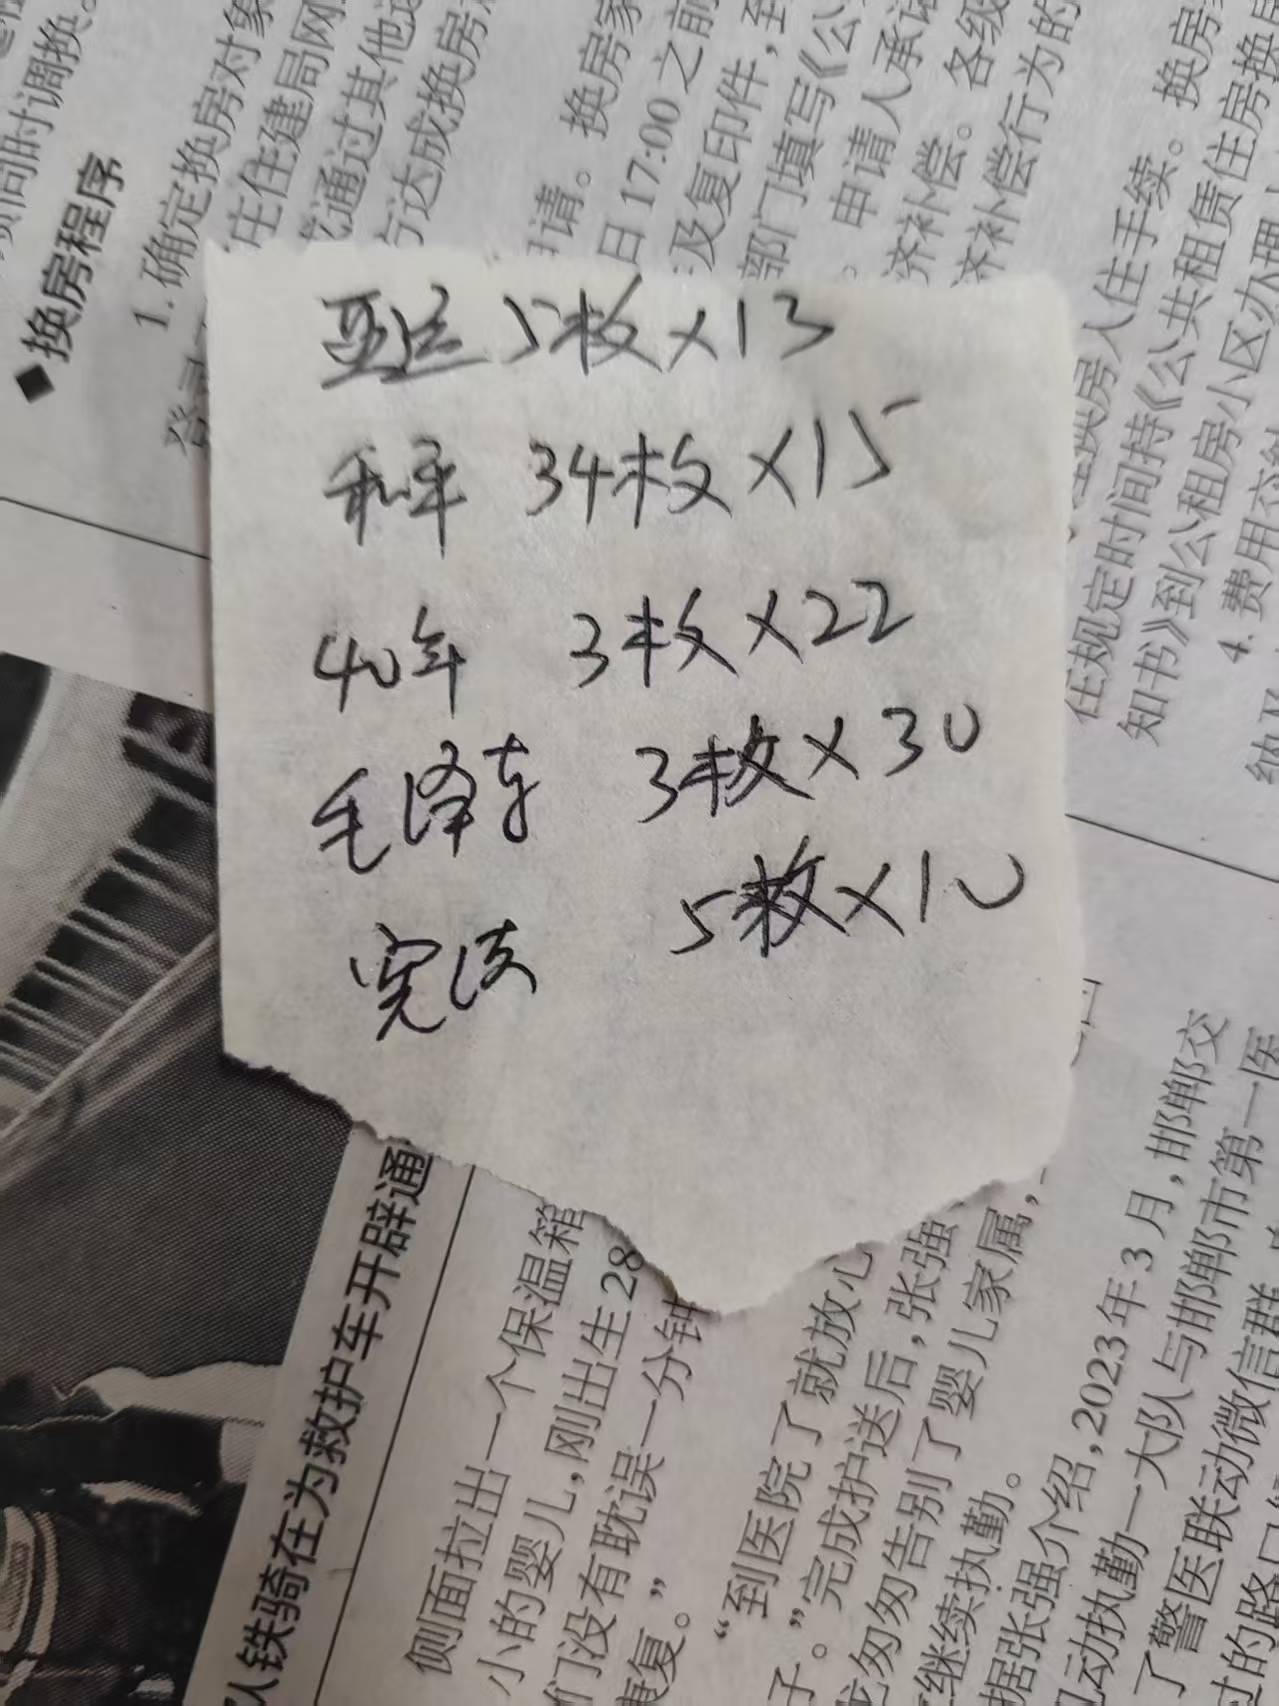 亚运 5枚×13
和平 34枚×15
40年 3枚×22
毛泽东 3枚×30
宪法 5枚×10
◆换房程序
1.确定换房对象
庄住建局网
通过其他途
达成换房
项同时调换。
申请。换房家
日17:00之前
及复印件,至
部门填写《公
。申请人承诺
济补偿。各级
济补偿行为的
换房人入住手续。换房
在规定时间持《公共租赁住房换房
知书》到公租房小区办理
4.费用交
队铁骑在为救护车开辟通
侧面拉出一个保温箱
小的婴儿,刚出生28
们没有耽误一分钟
康复。”
“到医院了就放心
子。”完成护送后,张强
匆匆告别了婴儿家属,
继续执勤。
据张强介绍,2023年3月,邯郸交
机动执勤一大队与邯郸市第一医
了警医联动微信群
过的路口